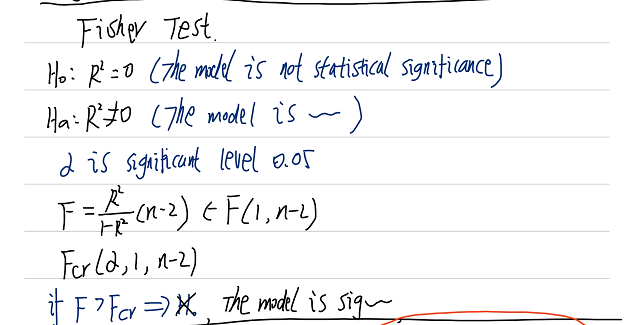 Fisher Test.
H₀: R²=0 (The model is not statistical significance)
Ha: R²≠0 (The model is ~)
α is significant level 0.05
F = R²/(1-R²) (n-2) ∈ F(1, n-2)
Fcr (α, 1, n-2)
if F > Fcr ⇒ , The model is sig~